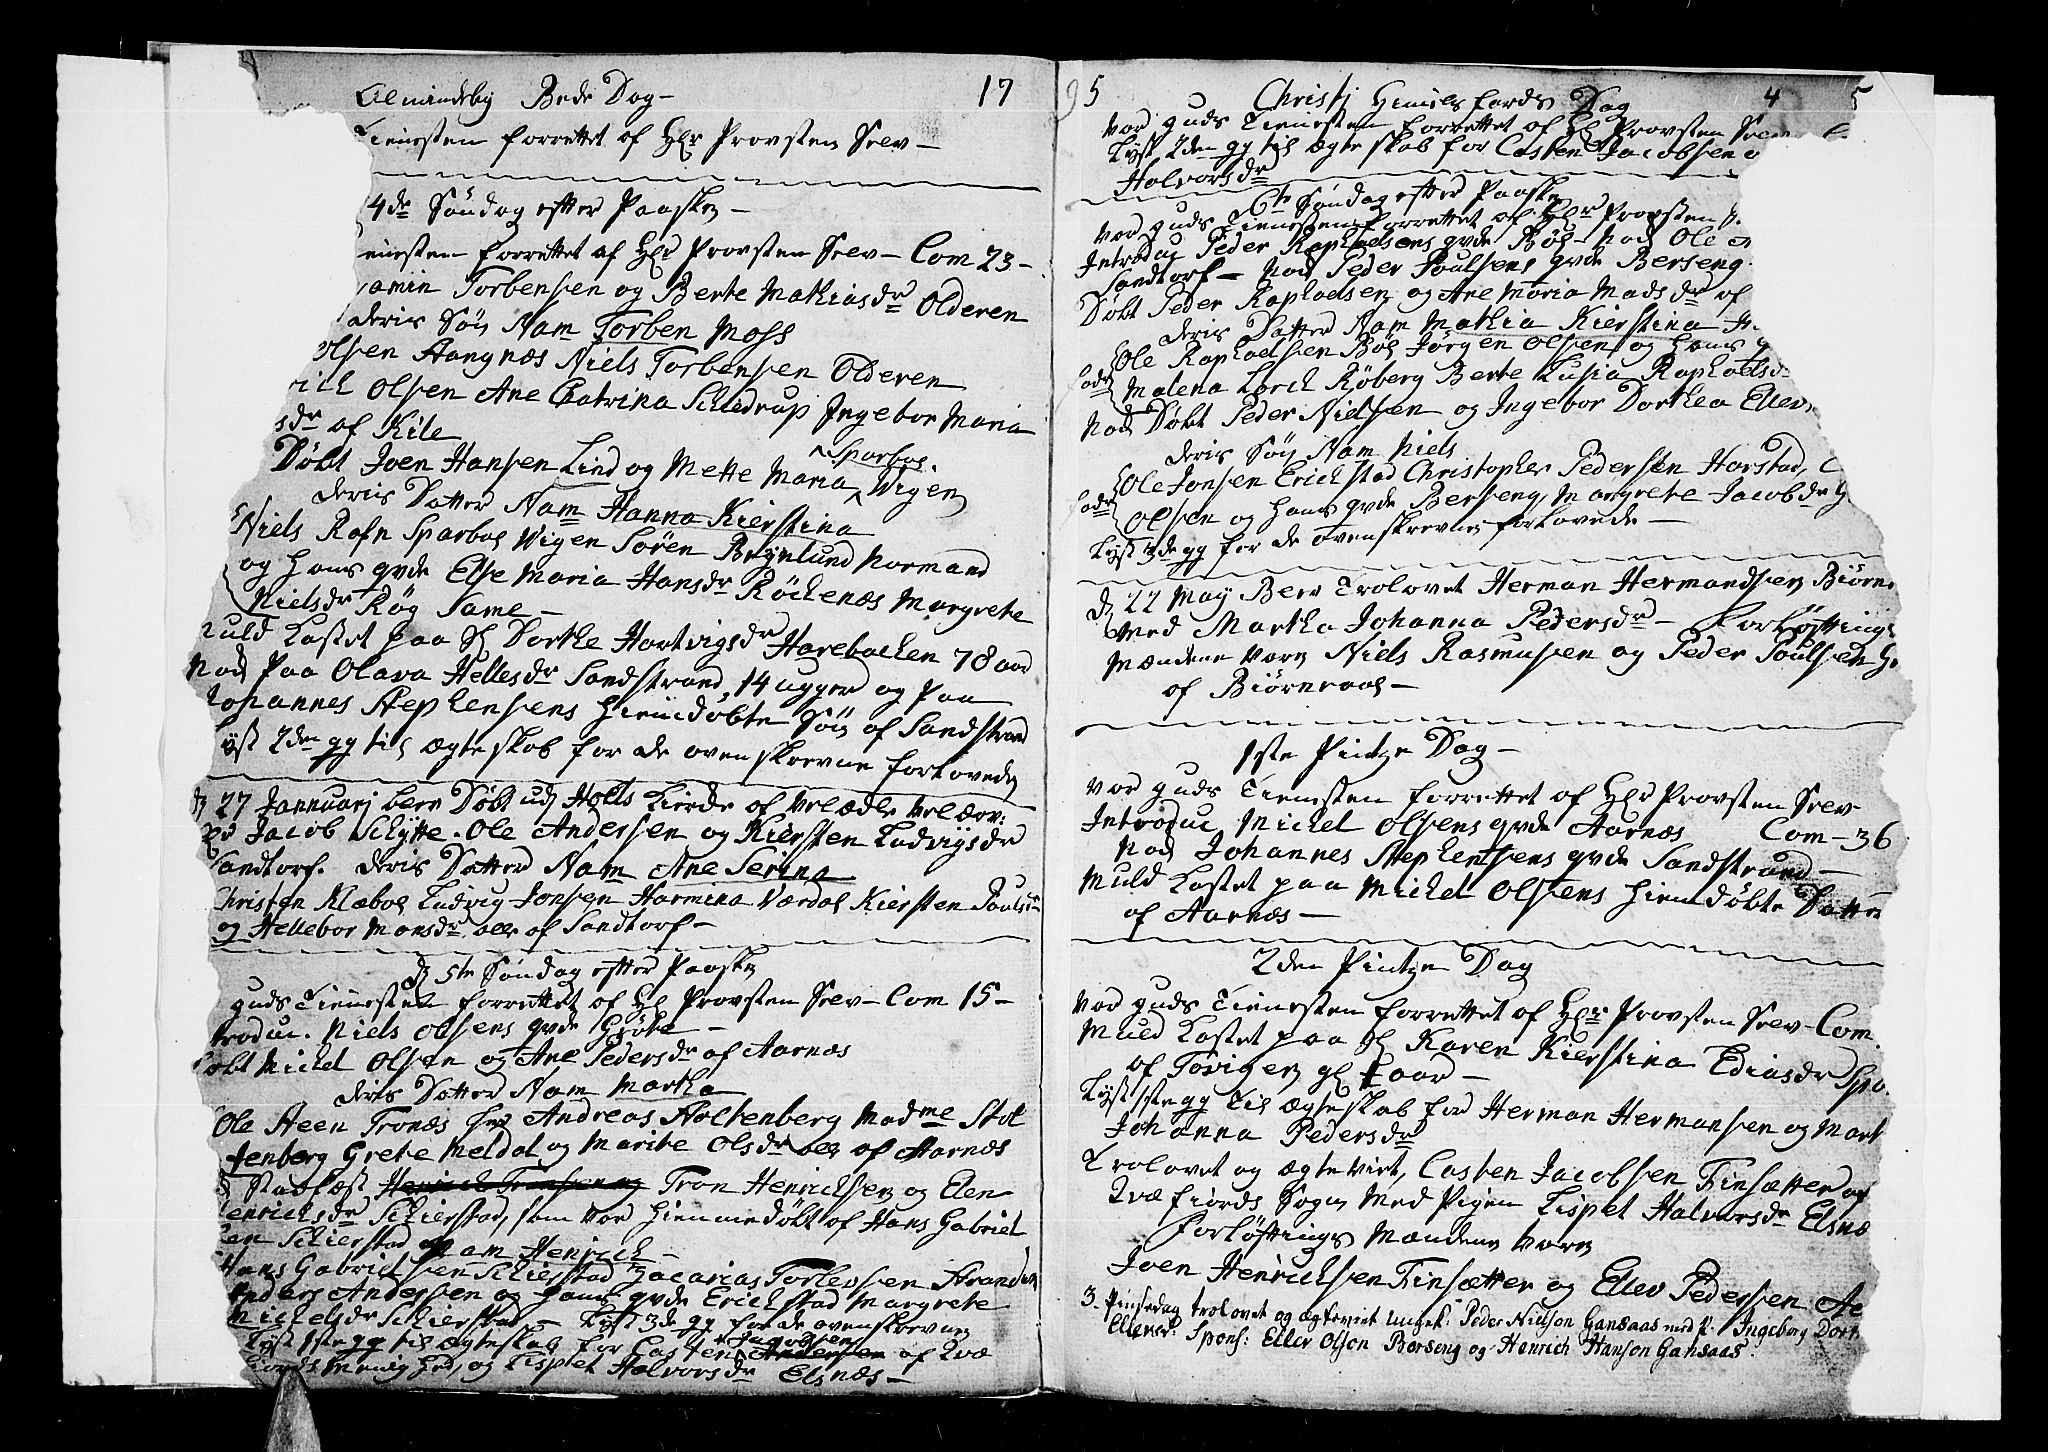 Almindelig Bede Dag – 17
Tienesten forrettet af Hr Provsten Selv –
4de Søndag efter Paaske –
enesten forrettet af Hr Provsten Selv – Com 23 –
amin Torbensen og Berte Mathiasdr Olderen
deris Søn Nam Torben Moss
olsen Aangnæs Niels Torbensen Olderen
rich Olsen Ane Catrina Schiedrup Ingebor Maria
sdr af Kile
Døbt Joen Hansen Lind og Mette Maria Sparboe Wigen
deris Datter Nam Hanna Kierstina
Niels Rafn Sparboe Wigen Søren Brynlund Normand
og Hans qvde Else Maria Hansdr Röckenæs Margrete
Nielsdr Røg Same –
Muld Kastet paa Sl Dorthe Hartvigsdr Harebacken 78 aar
Nock Paa Olava Hellesdr Sandstrand, 14 uger og Paa
Johannes Stephensens Hiemdøbte Søn af Sandstrand
lyst 2den gg til ægteskab for de ovenskrevne forlovede
d 27 Januarj blev Døbt udj Hols Kirke af Velædle Velærv:
Hr Jacob Schytte. Ole Andersen og Kiersten Ludvigsdr
Sandtorf. deris Datter Nam Ane Serina
Christen Klæboe Ludvig Jonsen Harmina Værdal Kiersten Poulsdr
og Hellebor Monsdr alle af Sandtorf –
d 5te Søndag efter Paaske
guds Tienesten forrettet af Hr Provsten Selv – Com 15 –
troduc. Niels Olsens qvde Grøte –
øbt Michel Olsen og Ane Pedersdr af Aarnæs
deris Datter Nam Martha
Ole Steen Tronæs Hr Andreas Holtenberg Madme Stol
tenberg Grete Meldal og Marite Olsdr alle af Aarnæs
Stadfæst Henrich Tronsen og Tron Henrichsen og Elen
Henrichsdr Schierstad, som var Hiemmedøbt af Hans Gabriel
sen Schierstad og Nam Henrich –
Hans Gabrielsen Schierstad Zacarias Torlevsen Stranden
Anders Andersen og Hans qvde Erichstad Margrete
Michelsdr Schierstad – Lyst 3de gg for de ovenskrevne
Lyst 1ste gg til ægteskab for Casten Jacobsen Andersen af Qvæ
fiords Menighed, og Lispet Halvorsdr Elsnæs –
95 Christj Himels farts Dag 4
Var guds Tienesten forrettet af Hr Provsten Selv
Lyst 2den gg til ægteskab for Casten Jacobsen o
Halvorsdr
6te Søndag efter Paaske
Var guds Tienesten forrettet af Hr Provsten S
Introduc Peder Raphaelsens qvde Bøe – Nock Ole
Sandtorf – Nock Peder Poulsens qvde Berseng
Døbt Peder Raphaelsen og Ane Maria Madsdr af
deris Datter Nam Mathia Kierstina
Ole Raphaelsen Boe Jørgen Olsen og Hans q
Malena Lorck Røberg Berte Lusia Raphaelsd
Nock Døbt Peder Nielsen og Ingebor Dorthea Ellev
deris Søn Nam Niels
Ole Jonsen Erichstad Christopher Pedersen Harstad,
Olsen og Hans qvde Berseng, Margrete Jacobsdr
Lyst 3de gg for de ovenskrevne forlovede –
d 22 May Blev Trolovet Herman Hermandsen Biørn
med Martha Johanna Pedersdr – Forløftnings
Mændene Vare Niels Rasmusen og Peder Poulsen
af Biørneraae –
1ste Pintze Dag –
Var guds Tienesten forrettet af Hr Provsten Selv
Introduc Michel Olsens qvde Aarnæs Com – 36
Nock Johannes Stephensens qvde Sandstrand –
Muld Kastet paa Michel Olsens Hiemdøbte Datter
af Aarnæs –
2den Pintze Dag
Var guds Tienesten forrettet af Hr Provsten Selv – Com.
Muld Kastet paa Sl Karen Kierstina Ediasdr Spa
af Tøvigen gl aar –
Lyst 1ste gg Til ægteskab for Herman Hermansen og Mart
Johanna Pedersdr
Trolovet og ægteviet, Casten Jacobsen Finsætter af
Qvæfiords Sogn Med Pigen Lispet Halvorsdr Elsnæ
Forløftnings Mændene Vare
Joen Henrichsen Finsætter og Ellev Pedersen
3. Pinsedag trolovet og ægteviet ungk: Peder Nielson Gansaas med P: Ingeborg Dort
Ellevsd: Spons: Ellev Olson Berseng og Henrich Hanson Gansaas.